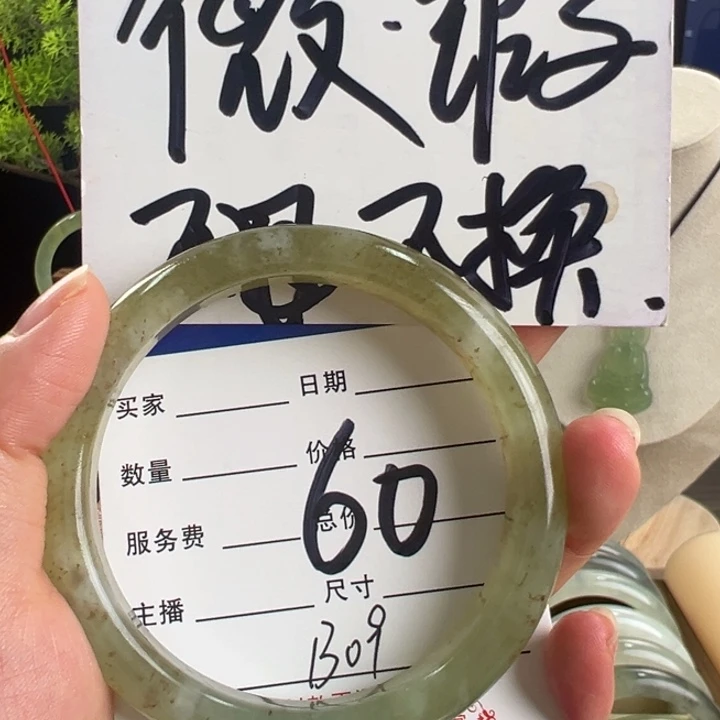 微·瑕
不退不换.
买家 日期
数量 价格
60
服务费 总价
主播 尺寸
B09